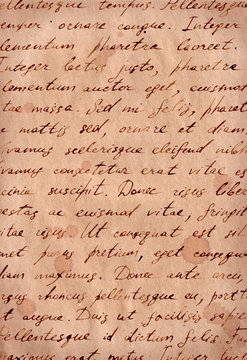 ellentesque tempus. Pellentesqu
emper ornare congue. Integer
lementum pharetra laoreet.
Integer lectus justo, pharetra
lementum auctor eget, euismod
tae massa. Sed mi felis, pharet
e mattis sed, ornare et diam
ivamus scelerisque eleifend nibh
ivamus consectetur erat vitae es
cinia suscipit. Donec risus liber
estas ac euismod vitae, fringil
vitae risus. Ut consequat est sit
met purus pretium, eget consequa
diam maximus. Donec ante arcu
rsus rhoncus pellentesque eu, portt
t augue. Duis ut facilisis sapie
Pellentesque id dictum felis.
vivamus erat metus. Integer